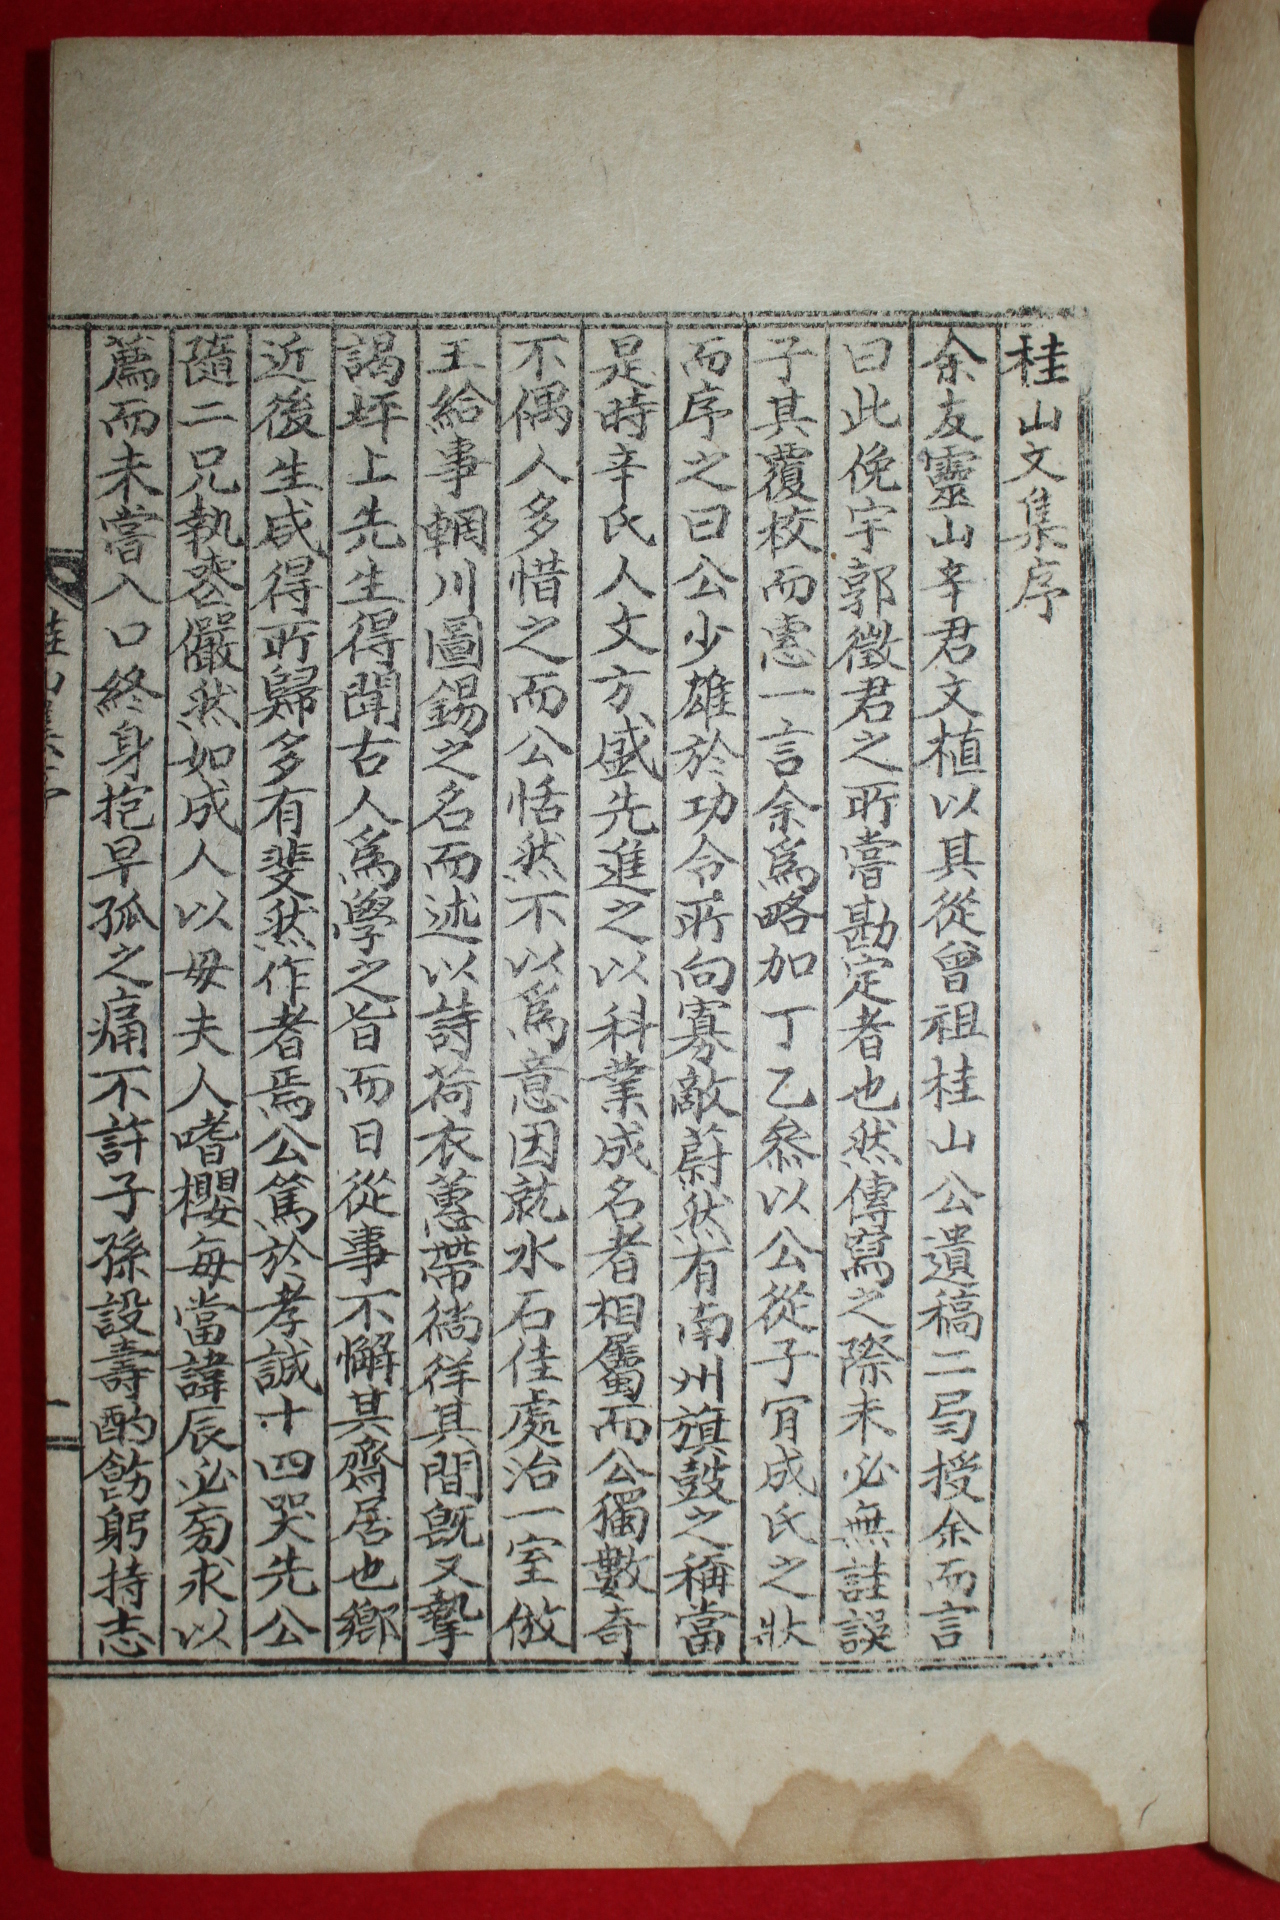 桂山文集序
余友靈山辛君文植以其從曾祖桂山公遺稿二局授余而言
曰此俛宇郭徵君之所嘗勘定者也然傳寫之際未必無註誤
子其覆校而惠一言余爲略加丁乙叅以公從子肎成氏之狀
而序之曰公少雄於功令所向寡敵蔚然有南州旗鼓之稱當
是時辛氏人文方盛先進之以科業成名者相屬而公獨數奇
不偶人多惜之而公恬然不以爲意因就水石佳處治一室倣
王給事輞川圖錫之名而述以詩荷衣蕙帶徜徉其間旣又摯
謁坪上先生得聞古人爲學之旨而日從事不懈其齋居也鄕
近後生咸得所歸多有斐然作者焉公篤於孝誠十四哭先公
隨二兄執喪儼然如成人以母夫人嗜櫻每當諱辰必旁求以
薦而未嘗入口終身抱早孤之痛不許子孫設壽酌飭躬持志